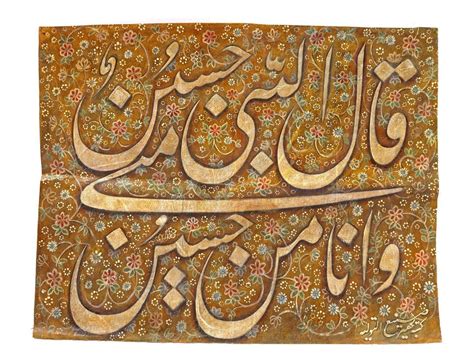 قال النبی حسین
منی
وانا من حسین